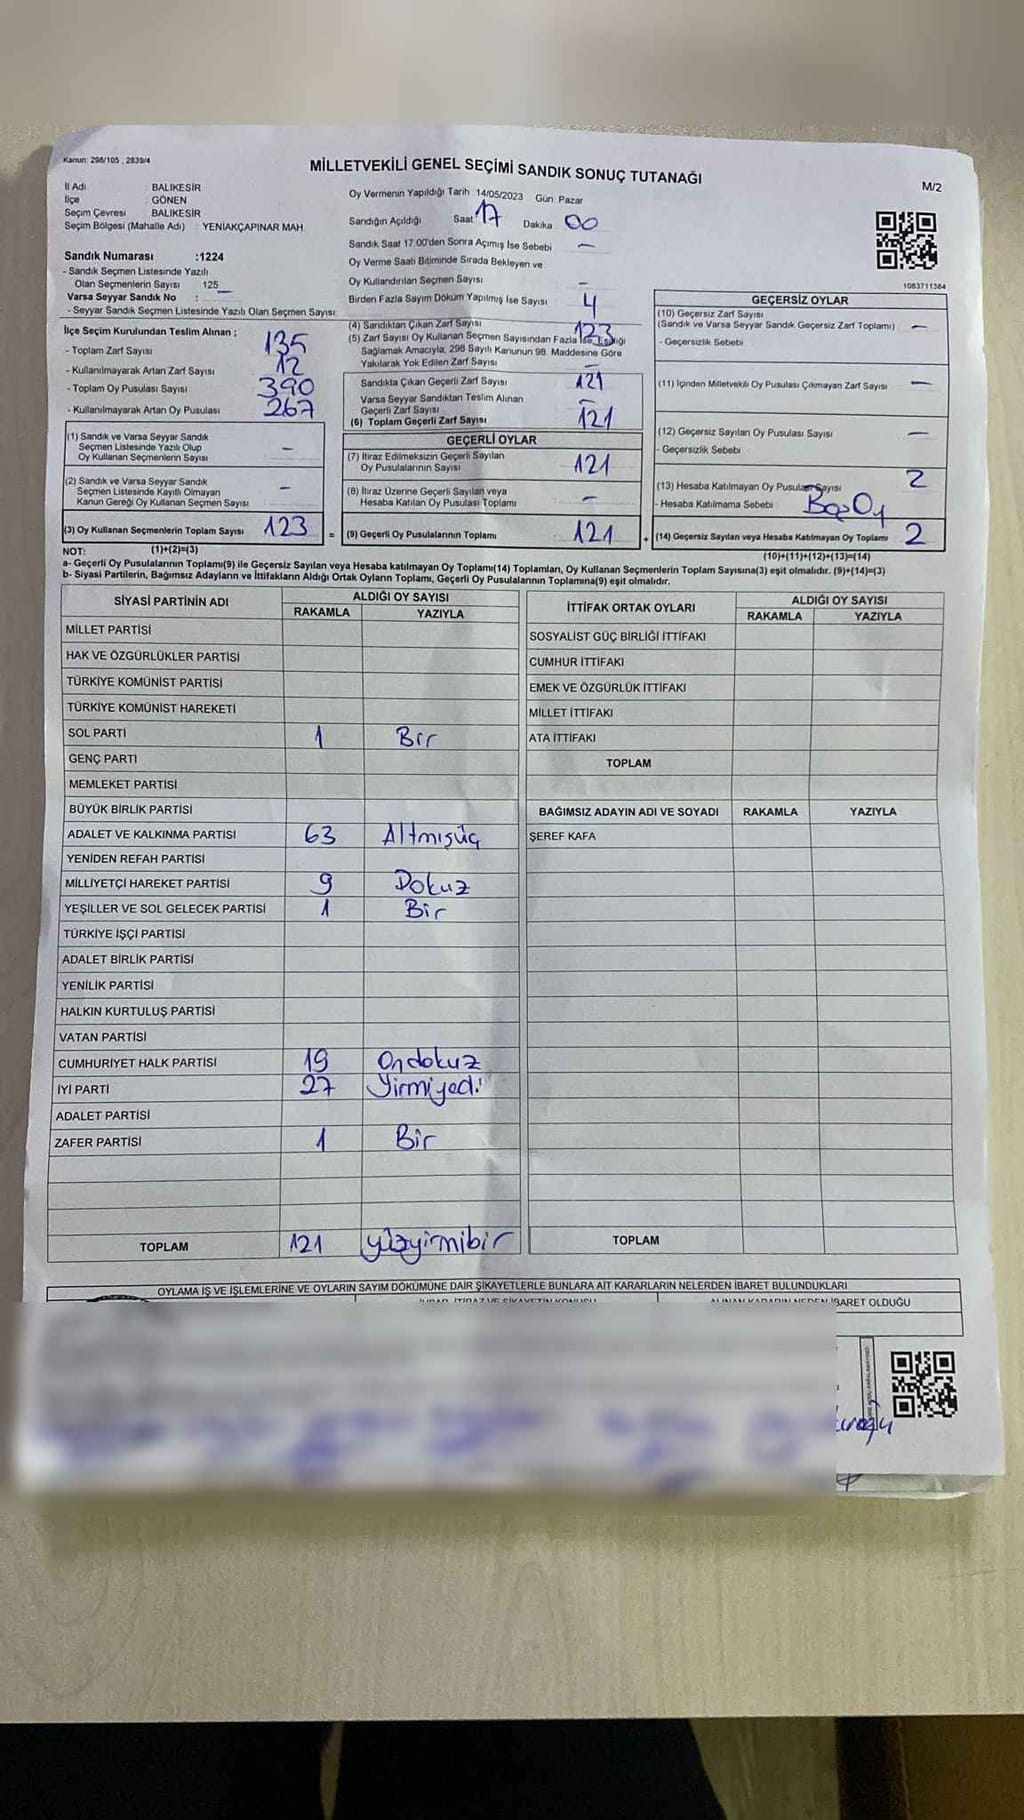 Kanun: 298/105 , 2839/4
MİLLETVEKİLİ GENEL SEÇİMİ SANDIK SONUÇ TUTANAĞI
M/2
İl Adı : BALIKESİR
İlçe : GÖNEN
Seçim Çevresi : BALIKESİR
Seçim Bölgesi (Mahalle Adı) : YENİAKÇAPINAR MAH.
Sandık Numarası :1224
- Sandık Seçmen Listesinde Yazılı
Olan Seçmenlerin Sayısı 125
Varsa Seyyar Sandık No :
- Seyyar Sandık Seçmen Listesinde Yazılı Olan Seçmen Sayısı:
Oy Vermenin Yapıldığı Tarih 14/05/2023 Gün Pazar
Sandığın Açıldığı Saat 17 Dakika 00
Sandık Saat 17:00'den Sonra Açımış İse Sebebi —
Oy Verme Saati Bitiminde Sırada Bekleyen ve
Oy Kullandırılan Seçmen Sayısı —
Birden Fazla Sayım Döküm Yapılmış İse Sayısı 4
1083711384
İlçe Seçim Kurulundan Teslim Alınan ;
- Toplam Zarf Sayısı 135
- Kullanılmayarak Artan Zarf Sayısı 12
- Toplam Oy Pusulası Sayısı 390
- Kullanılmayarak Artan Oy Pusulası 267
(1) Sandık ve Varsa Seyyar Sandık
Seçmen Listesinde Yazılı Olup
Oy Kullanan Seçmenlerin Sayısı —
(2) Sandık ve Varsa Seyyar Sandık
Seçmen Listesinde Kayıtlı Olmayan
Kanun Gereği Oy Kullanan Seçmen Sayısı —
(3) Oy Kullanan Seçmenlerin Toplam Sayısı 123
(1)+(2)=(3)
(4) Sandıktan Çıkan Zarf Sayısı 123
(5) Zarf Sayısı Oy Kullanan Seçmen Sayısından Fazla İse, Eşitliği
Sağlamak Amacıyla; 298 Sayılı Kanunun 98. Maddesine Göre
Yakılarak Yok Edilen Zarf Sayısı —
Sandıkta Çıkan Geçerli Zarf Sayısı 121
Varsa Seyyar Sandıktan Teslim Alınan
Geçerli Zarf Sayısı —
(6) Toplam Geçerli Zarf Sayısı 121
GEÇERLİ OYLAR
(7) İtiraz Edilmeksizin Geçerli Sayılan
Oy Pusulalarının Sayısı 121
(8) İtiraz Üzerine Geçerli Sayılan veya
Hesaba Katılan Oy Pusulası Toplamı —
= (9) Geçerli Oy Pusulalarının Toplamı 121
GEÇERSİZ OYLAR
(10) Geçersiz Zarf Sayısı
(Sandık ve Varsa Seyyar Sandık Geçersiz Zarf Toplamı) —
- Geçersizlik Sebebi
(11) İçinden Milletvekili Oy Pusulası Çıkmayan Zarf Sayısı —
(12) Geçersiz Sayılan Oy Pusulası Sayısı —
- Geçersizlik Sebebi
(13) Hesaba Katılmayan Oy Pusulası Sayısı 2
- Hesaba Katılmama Sebebi Boş Oy
+ (14) Geçersiz Sayılan veya Hesaba Katılmayan Oy Toplamı 2
(10)+(11)+(12)+(13)=(14)
NOT:
a- Geçerli Oy Pusulalarının Toplamı(9) ile Geçersiz Sayılan veya Hesaba katılmayan Oy Toplamı(14) Toplamları, Oy Kullanan Seçmenlerin Toplam Sayısına(3) eşit olmalıdır. (9)+(14)=(3)
b- Siyasi Partilerin, Bağımsız Adayların ve İttifakların Aldığı Ortak Oyların Toplamı, Geçerli Oy Pusulalarının Toplamına(9) eşit olmalıdır.
SİYASİ PARTİNİN ADI ALDIĞI OY SAYISI
RAKAMLA YAZIYLA
MİLLET PARTİSİ
HAK VE ÖZGÜRLÜKLER PARTİSİ
TÜRKİYE KOMÜNİST PARTİSİ
TÜRKİYE KOMÜNİST HAREKETİ
SOL PARTİ 1 Bir
GENÇ PARTİ
MEMLEKET PARTİSİ
BÜYÜK BİRLİK PARTİSİ
ADALET VE KALKINMA PARTİSİ 63 Altmışüç
YENİDEN REFAH PARTİSİ
MİLLİYETÇİ HAREKET PARTİSİ 9 Dokuz
YEŞİLLER VE SOL GELECEK PARTİSİ 1 Bir
TÜRKİYE İŞÇİ PARTİSİ
ADALET BİRLİK PARTİSİ
YENİLİK PARTİSİ
HALKIN KURTULUŞ PARTİSİ
VATAN PARTİSİ
CUMHURİYET HALK PARTİSİ 19 Ondokuz
İYİ PARTİ 27 Yirmiyedi
ADALET PARTİSİ
ZAFER PARTİSİ 1 Bir
TOPLAM 121 yüzyirmibir
İTTİFAK ORTAK OYLARI ALDIĞI OY SAYISI
RAKAMLA YAZIYLA
SOSYALİST GÜÇ BİRLİĞİ İTTİFAKI
CUMHUR İTTİFAKI
EMEK VE ÖZGÜRLÜK İTTİFAKI
MİLLET İTTİFAKI
ATA İTTİFAKI
TOPLAM
BAĞIMSIZ ADAYIN ADI VE SOYADI RAKAMLA YAZIYLA
ŞEREF KAFA
TOPLAM
OYLAMA İŞ VE İŞLEMLERİNE VE OYLARIN SAYIM DÖKÜMÜNE DAİR ŞİKAYETLERLE BUNLARA AİT KARARLARIN NELERDEN İBARET BULUNDUKLARI
İBARET OLDUĞU